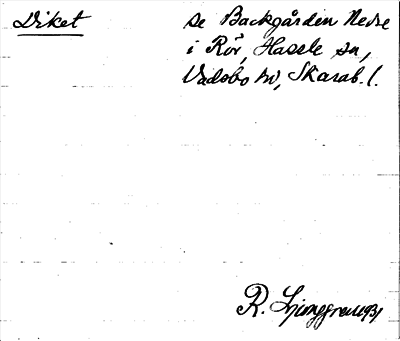 Diket
se Backgården Nedre
i Rör, Hassle sn,
Vadsbo hd, Skarab. l.
R. Ljunggren 1931